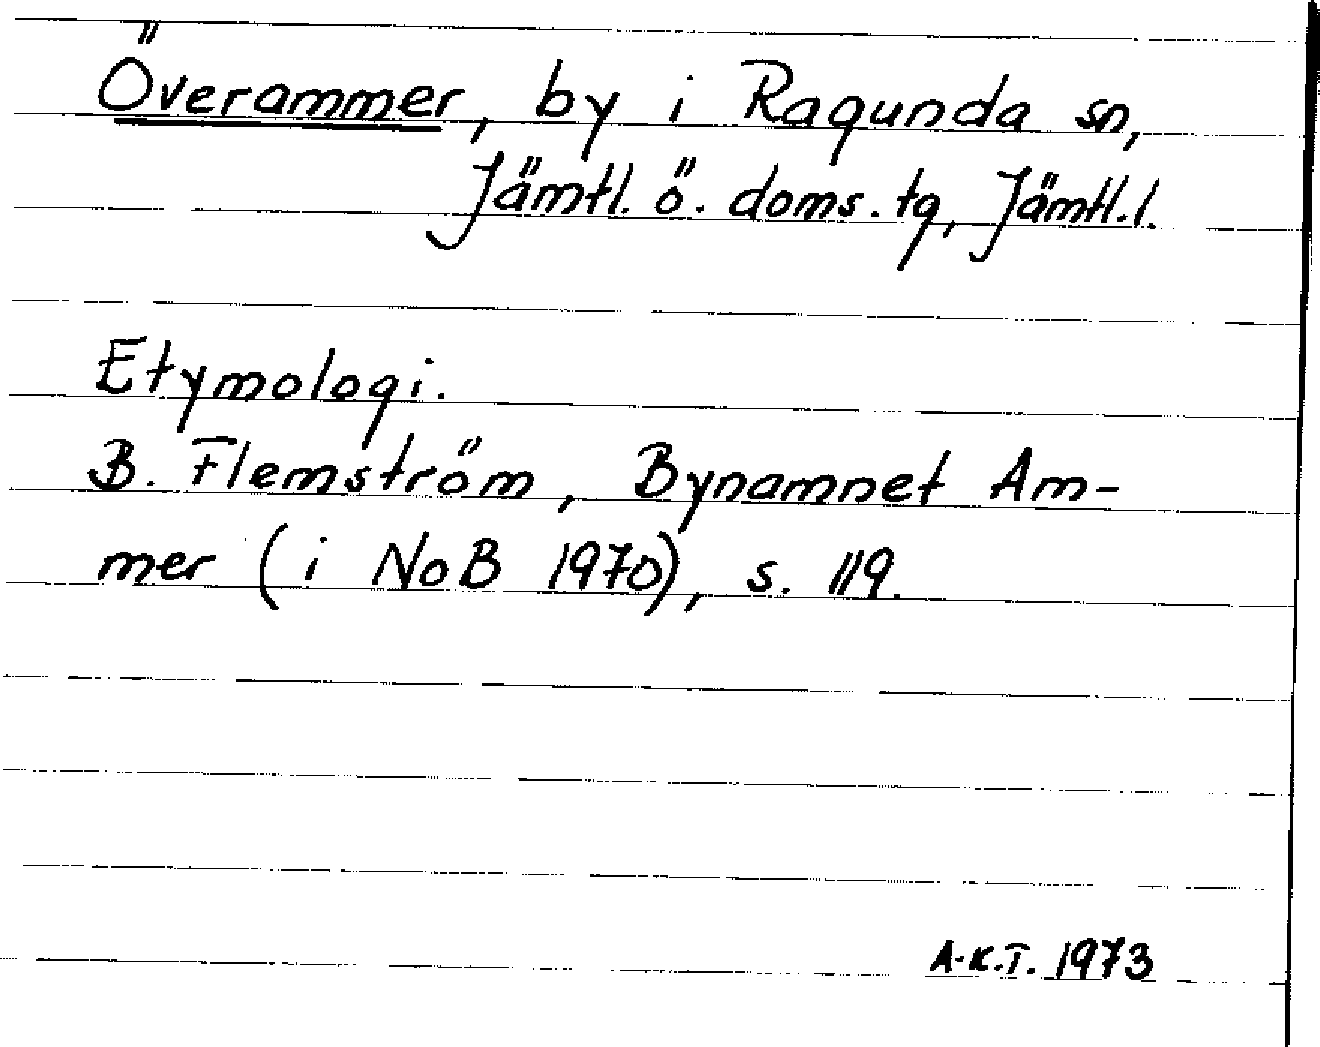 Överammer, by i Ragunda sn,
Jämtl. ö. doms. tg, Jämtl. l.
Etymologi.
B. Flemström, Bynamnet Am-
mer (i NoB 1970), s. 119.
A-K.T. 1973